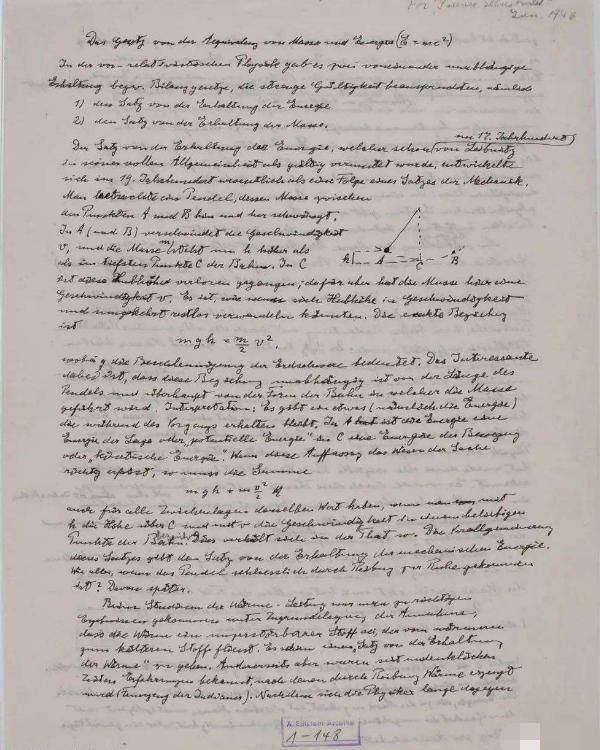 For Science Illustrated
Jan. 1946
Das Gesetz von der Aequivalenz von Masse und Energie (E = mc²)
In der vor-relativistischen Physik gab es zwei voneinander unabhängige
Erhaltung bezw. Bilanzgesetze, die strenge Gültigkeit beanspruchten, nämlich
1) den Satz von der Erhaltung der Energie
2) den Satz von der Erhaltung der Masse.
im 17. Jahrhundert
Der Satz von der Erhaltung der Energie, welcher schon von Leibnitz
in seiner vollen Allgemeinheit als gültig vermutet wurde, entwickelte
sich im 19. Jahrhundert wesentlich als eine Folge eines Satzes der Mechanik.
Man betrachte ein Pendel, dessen Masse zwischen
den Punkten A und B hin und her schwingt.
In A (und B) verschwindet die Geschwindigkeit
v, und die Masse m steht um h höher als
als im tiefsten Punkte C der Bahn. In C
ist diese Hubhöhe verloren gegangen; dafür aber hat die Masse hier eine
Geschwindigkeit v. Es ist, wie wenn sich Hubhöhe in Geschwindigkeit
und umgekehrt restlos verwandeln könnten. Die exakte Beziehung
ist
h A C B
m g h = m/2 v²,
wobei g die Beschleunigung der Erdschwere bedeutet. Das Interessante
dabei ist, dass diese Beziehung unabhängig ist von der Länge des
Pendels und überhaupt von der Form der Bahn in welcher die Masse
geführt wird. Interpretation: Es gibt ein etwas (nämlich die Energie)
die während des Vorgangs erhalten bleibt. In A ist die Energie eine
Energie der Lage oder „potentielle Energie" in C eine Energie der Bewegung
oder „kinetische Energie". Wenn diese Auffassung das Wesen der Sache
richtig erfasst, so muss die Summe
m g h + m v²/2
auch für alle Zwischenlagen denselben Wert haben, wenn man mit
h die Höhe über C und mit v die Geschwindigkeit in einem beliebigen
Punkte der Bahn Dies verhält sich in der That so. Die Verallgemeinerung
dieses Satzes gibt den Satz von der Erhaltung der mechanischen Energie.
Wie aber, wenn das Pendel schliesslich durch Reibung zur Ruhe gekommen
ist? Davon später.
Beim Studium der Wärme-Leitung war man zu richtigen
Ergebnissen gekommen unter Zugrundelegung der Annahme,
dass die Wärme ein unzerstörbarer Stoff sei, der vom wärmeren
zum kälteren Stoff fliesst. Es schien einen „Satz von der Erhaltung
der Wärme" zu geben. Andererseits aber waren seit undenklichen
Zeiten Erfahrungen bekannt, nach denen durch Reibung Wärme erzeugt
wird (Feuerzeug der Indianer). Nachdem sich die Physiker lange dagegen
A. Einstein Archive
1-148